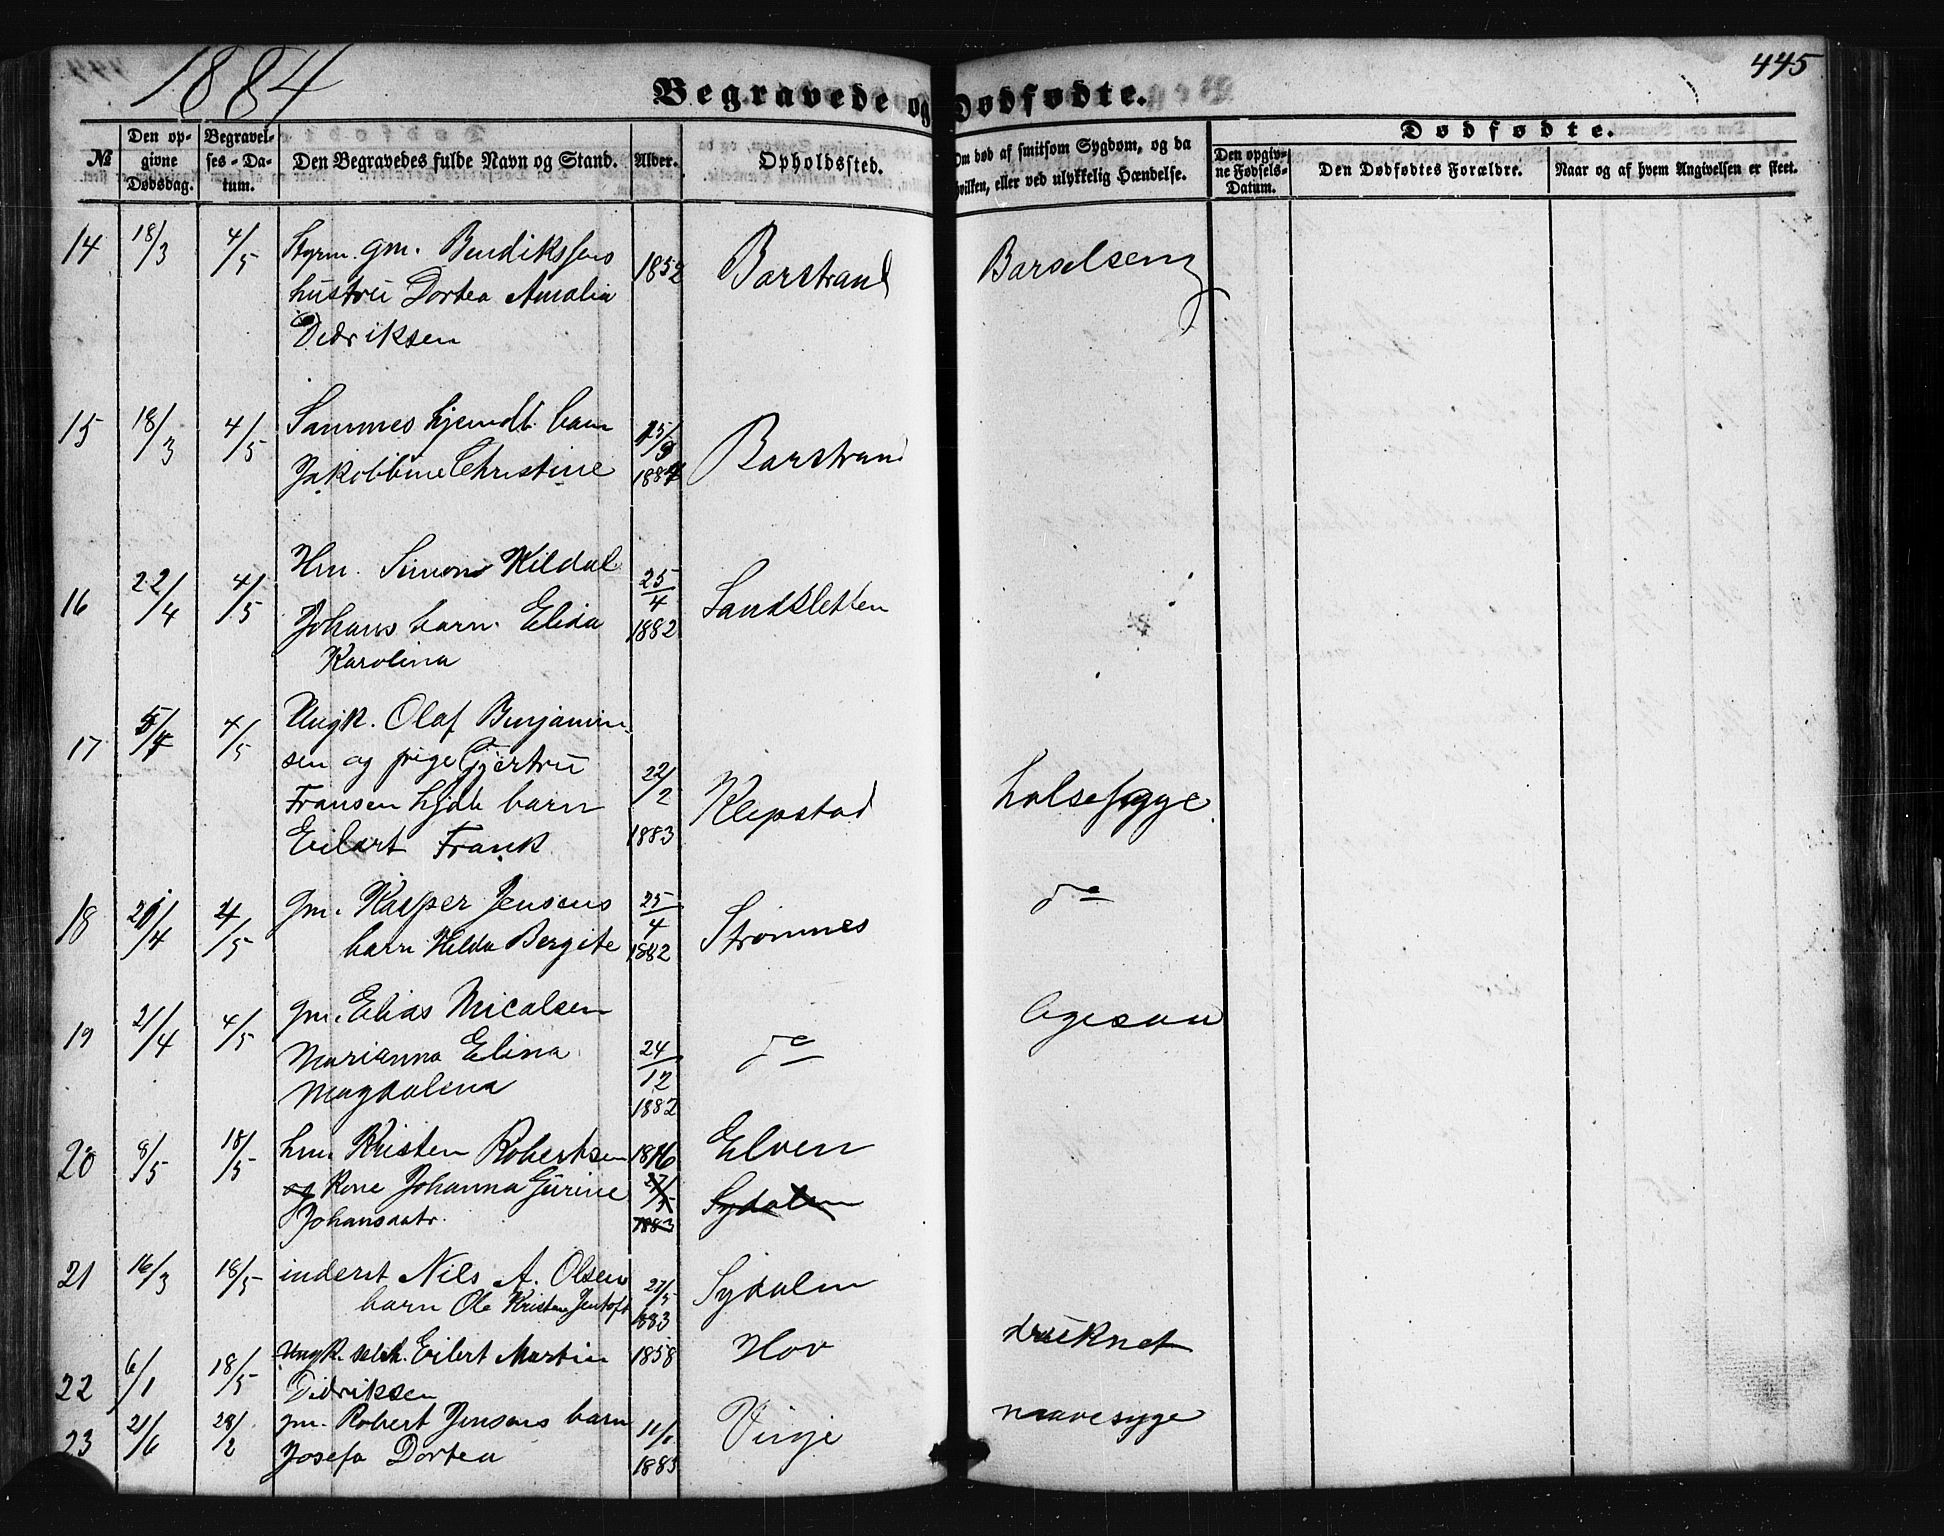 1884
445
Begravede og Dødfødte.
Dødfødte.
№
Den opgivne Dødsdag.
Begravelses-Datum.
Den Begravedes fulde Navn og Stand.
Alder.
Opholdssted.
Om død af smitsom Sygdom, og da hvilken, eller ved ulykkelig Hændelse.
Den opgivne Fødsels-Datum.
Den Dødfødtes Forældre.
Naar og af hvem Angivelsen er skeet.
14 18/3 4/5 Styrm. gm. Bendiksens 1852 Barstrand Barselseng
hustru Dortea Amalia
Didriksen
15 18/3 4/5 Sammes hjemdt. barn 15/3 Barstrand
Jakobbine Christine 1884
16 22/4 4/5 Hm. Simon Kildal 25/4 Sandsletten
Johans barn. Elida 1882
Karolina
17 5/4 4/5 Ungk. Olaf Benjamin-
sen og pige Gjertru 22/2
Fransen hjdt. barn Klepstad halsesyge
Eilert Frank 1883
18 21/4 4/5 gm. Kasper Jensens 25/4 Strømnes do
barn Hilda Bergite 1882
19 21/4 4/5 gm. Elias Micalsen
Marianna Elina 24/12 do
Magdalena 1882
20 8/5 18/5 hm. Kristen Robertsen 1816 Elven
og Kone Johanna Gurine 27/5 Sydalen
Johansdatr. 1883
21 16/3 18/5 inderst Nils A. Olsens 27/5 Sydalen
barn Ole Kristian Jentoft 1883
22 6/1 18/5 Ungk. Eilert Martin 1858 Hov druknet
Didriksen
23 21/6 28/2 gm. Robert Jensens barn 11/1 Vinje mavesyge
Josefa Dortea 1883